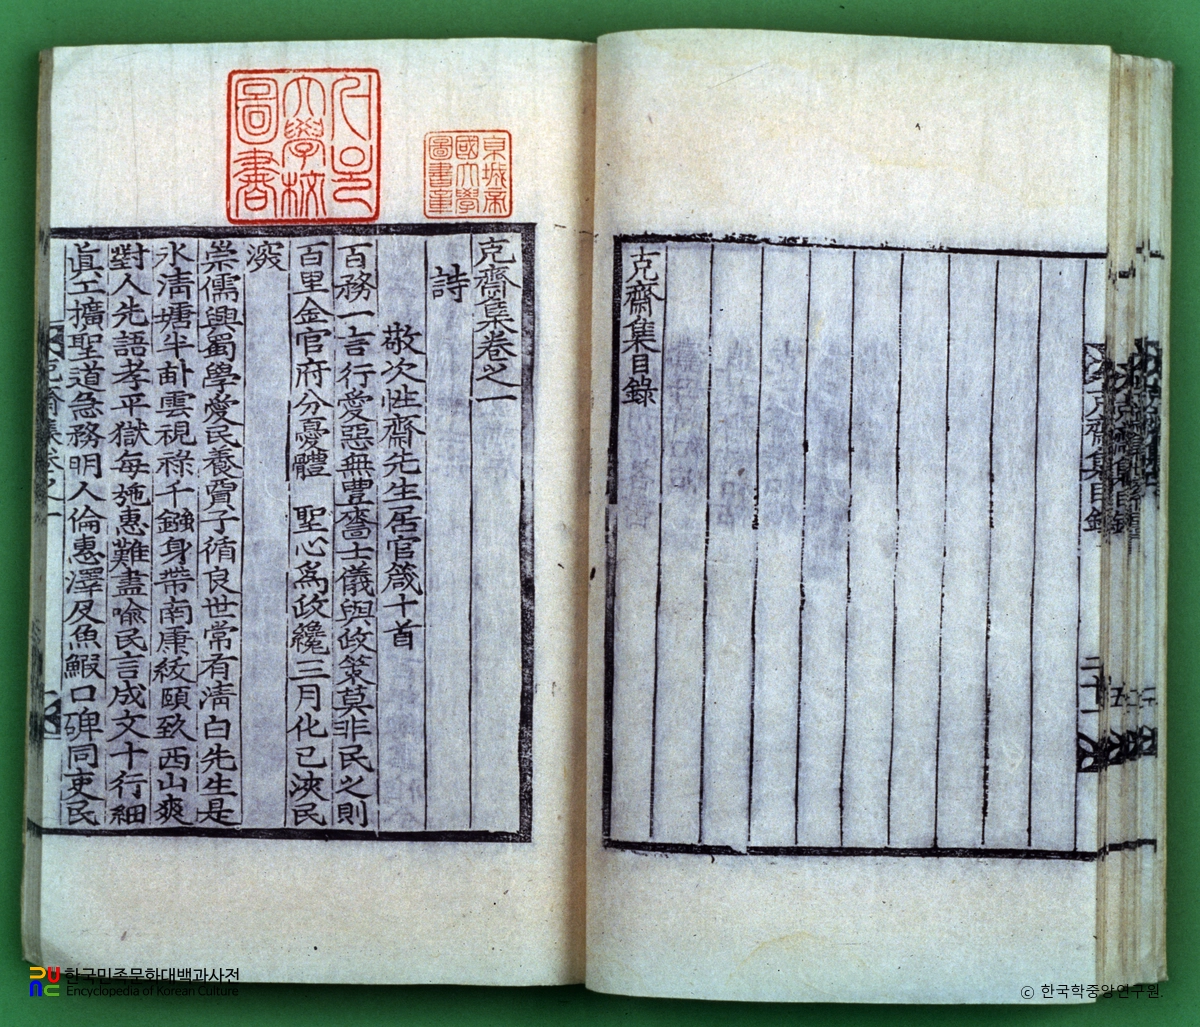 克齋集目錄
克齋集目錄
二十一
서울大學校圖書
京城帝國大學圖書章
克齋集卷之一
詩
敬次性齋先生居官箴十首
百務一言行愛惡無豊嗇士儀與政策莫非民之則
百里金官府分憂體 聖心爲政纔三月化已浹民
深
崇儒興蜀學愛民養賈子循良世常有淸白先生是
水淸塘半畝雲視祿千鍾身帶南康紱頤致西山爽
對人先語孝平獄每施惠難盡喩民言成文十行細
眞工擴聖道急務明人倫惠澤及魚鰕口碑同吏民
克齋集卷之一
한국민족문화대백과사전
Encyclopedia of Korean Culture
ⓒ 한국학중앙연구원.